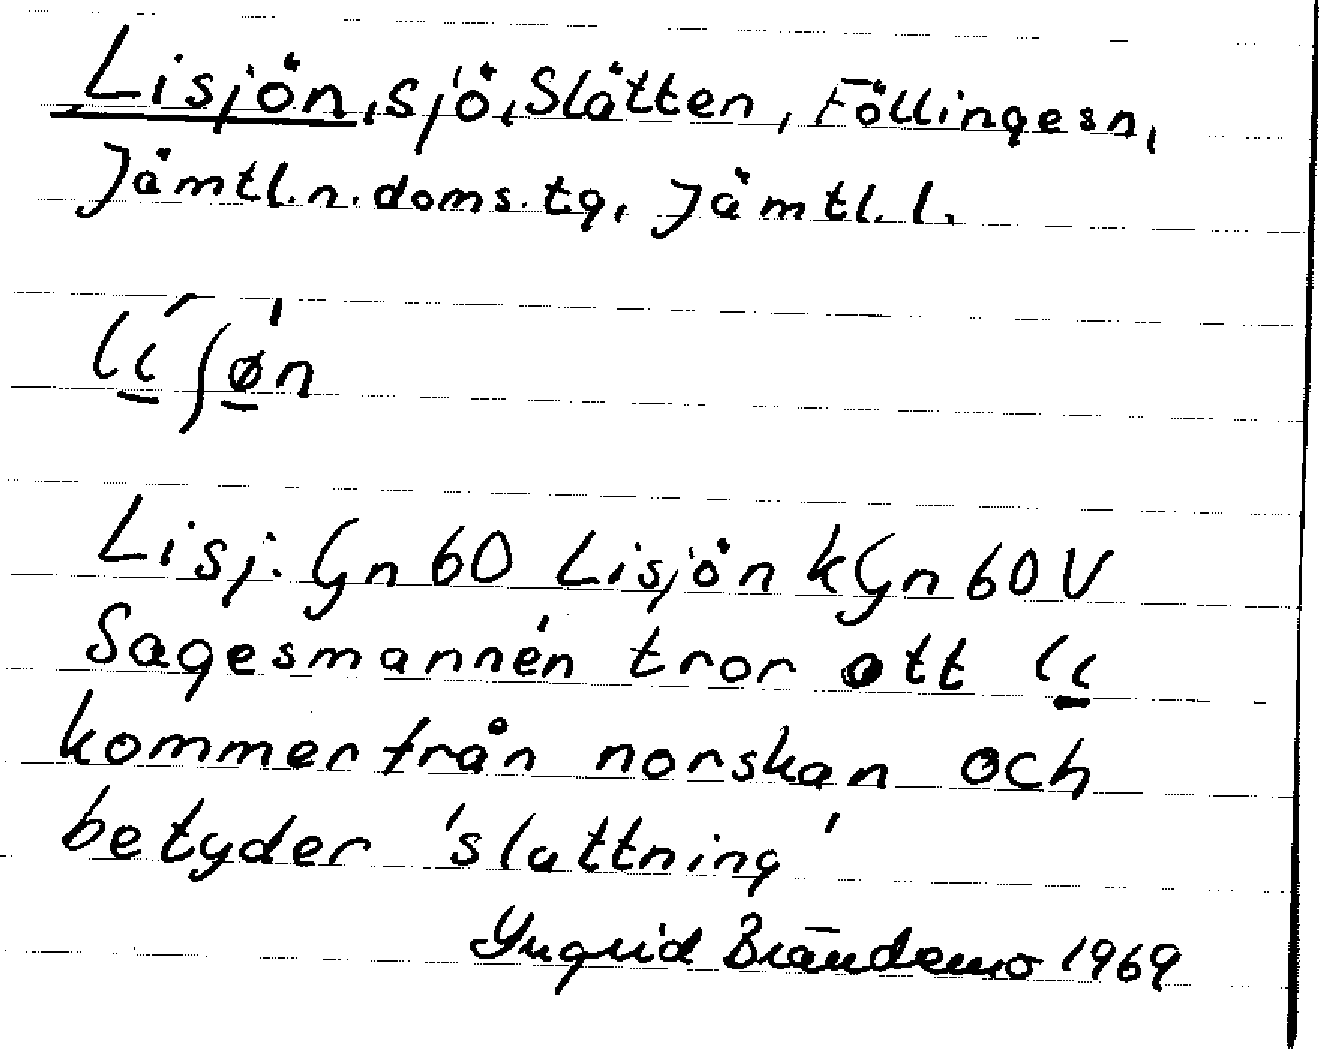 Lisjön, sjö, Slåtten, Föllingesn,
Jämtl.n.doms.tg, Jämtl.l.
lí̱ʃø̱̍n
Lisj. Gn 60 Lisjön kGn 60 V
Sagesmannen tror att li̱
kommer från norskan och
betyder 'sluttning'
Yngrid Brändemo 1969